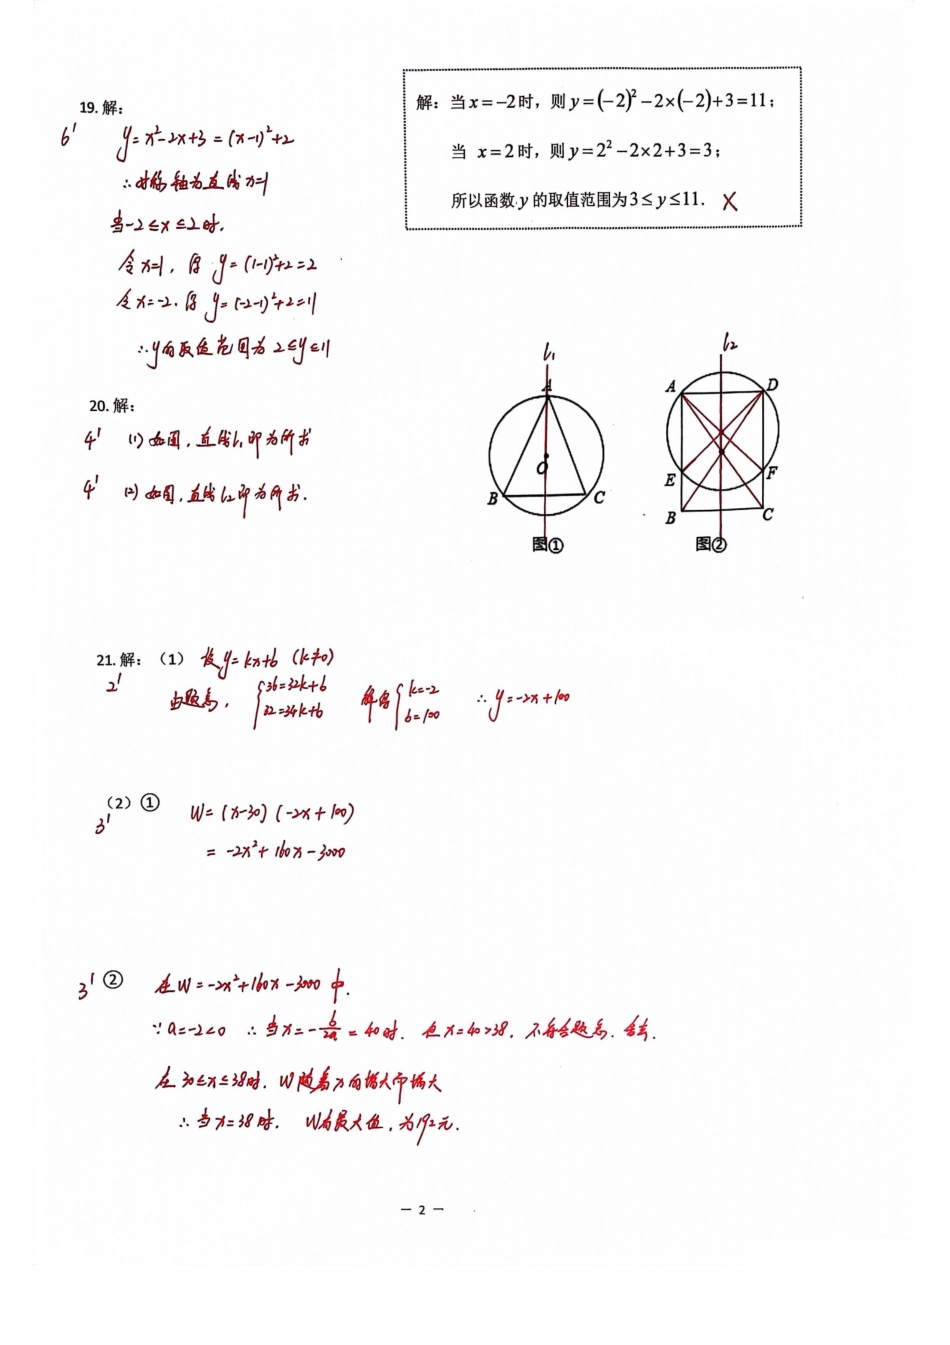 19. 解:
6' y=x²-2x+3=(x-1)²+2
∴对称轴为直线x=1
当-2≤x≤2时.
令x=1, 得 y=(1-1)²+2=2
令x=-2. 得 y=(-2-1)²+2=11
∴y的取值范围为 2≤y≤11
解: 当x=-2时, 则y=(-2)²-2×(-2)+3=11;
当 x=2时, 则y=2²-2×2+3=3;
所以函数y的取值范围为3≤y≤11. ×
20. 解:
4' (1) 如图, 直线l₁即为所求
4' (2) 如图, 直线l₂即为所求.
l₁
A
O
B C
图①
l₂
A D
E F
B C
图②
21. 解: (1) 设y=kx+b (k≠0)
2' 由题意, {36=32k+b 32=34k+b 解得{k=-2 b=100 ∴y=-2x+100
(2) ① W=(x-30)(-2x+100)
3' =-2x²+160x-3000
3' ② 在W=-2x²+160x-3000中.
∵a=-2<0 ∴当x=-b/2a=40时. 但x=40>38, 不符合题意. 舍去.
在30≤x≤38时. W随着x的增大而增大
∴当x=38时. W有最大值, 为192元.
- 2 -